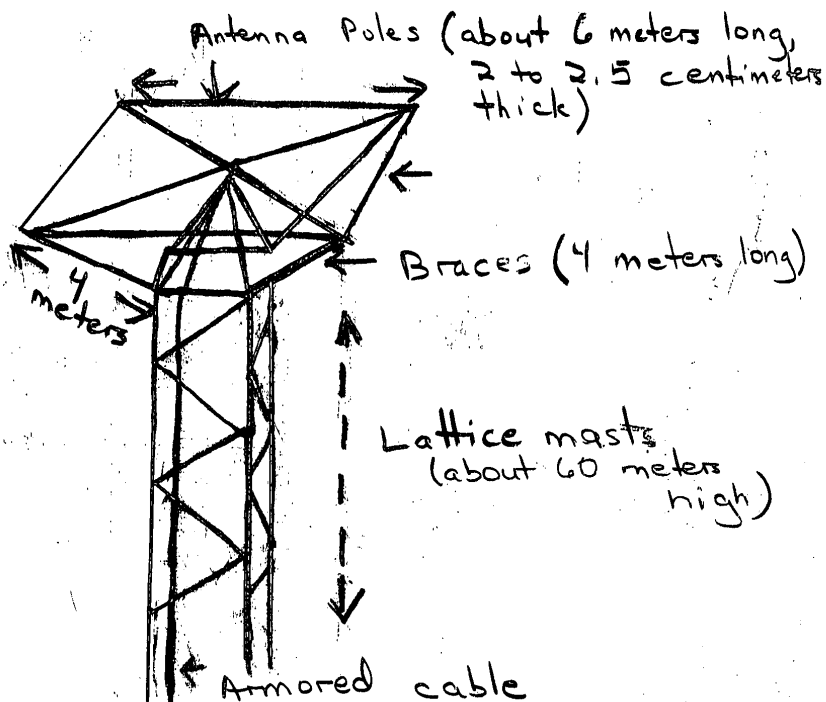 Antenna Poles (about 6 meters long,
2 to 2.5 centimeters
thick)
Braces (4 meters long)
4
meters
Lattice masts
(about 60 meters
high)
Armored cable